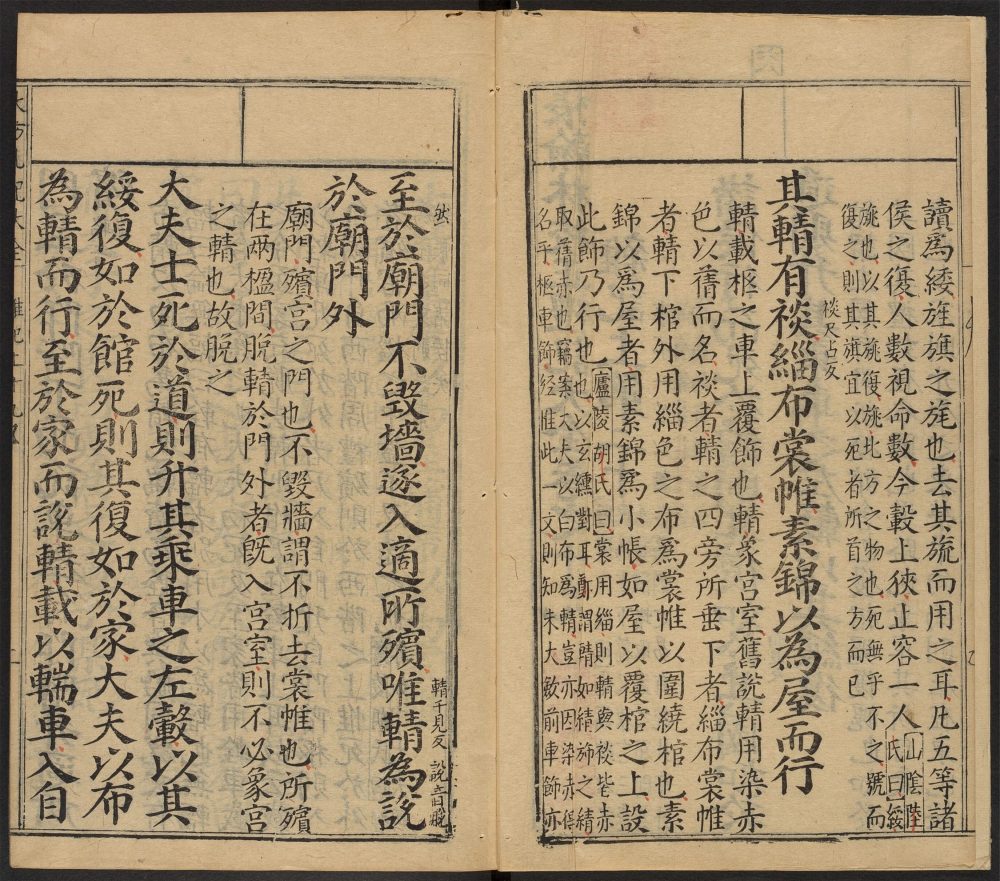 讀爲緌旌旗之旄也去其旒而用之耳凡五等諸
侯之復人數視命數今轂上狹止容一人山陰陸
氏曰綏
旄也以其旄復旄北方之物也死無乎不之號而
復之則其旗宜以死者所首之方而已
其輤有裧緇布裳帷素錦以為屋而行
裧尺占反
輤載柩之車上覆飾也輤象宫室舊說輤用染赤
色以蒨而名裧者輤之四旁所垂下者緇布裳帷
者輤下棺外用緇色之布爲裳帷以圍繞棺也素
錦以爲屋者用素錦爲小帳如屋以覆棺之上設
此飾乃行也廬陵胡氏曰裳用緇則輤與裧皆赤
也以玄纁對耳鄭謂輤如綪旆之綪
取蒨赤也竊案大夫以白布爲輤豈亦因染赤得
名乎柩車飾經惟此一文則知未大斂前車飾亦
然
至於廟門不毀墻遂入適所殯唯輤為說
於廟門外
輤千見反 說音脫
廟門殯宫之門也不毀牆謂不折去裳帷也所殯
在兩楹間脱輤於門外者旣入宫室則不必象宫
之輤也故脱之
大夫士死於道則升其乘車之左轂以其
綏復如於館死則其復如於家大夫以布
為輤而行至於家而說輤載以輲車入自